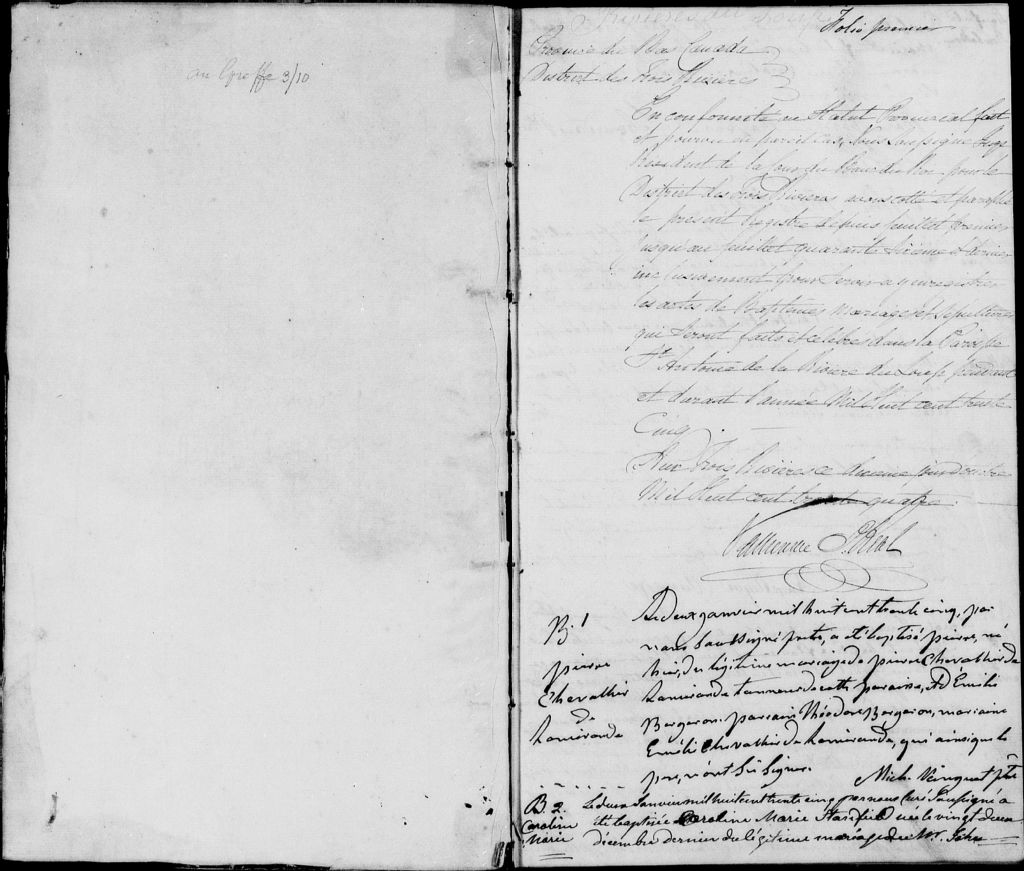 au Greffe 3/10
Folio premier
Province du Bas Canada
District des Trois Rivieres
En conformité au Statut Provincial fait
et pourvu en pareil cas, Nous Soussigné Juge
Président de la Cour du Banc du Roi pour le
District des Trois Rivieres avons cotté et paraphé
le présent Registre depuis feuillet premier
jusqu'au feuillet quarante & dernier
inclusivement pour servir a y enregistrer
les actes de Baptêmes Mariages et Sépultures
qui seront faits et célébrés dans la Paroisse
St Antoine de la Riviere du Loup pendant
et durant l'année Mil Huit cent trente
Cinq
Aux Trois Rivieres ce Decembre
Mil Huit cent trente quatre
Vallieres
B. 1
pierre
Chevallier
de
Lamirande
Le deux janvier mil huit cent trente cinq, par
nous Soussigné prêtre, a été baptisé pierre, né
hier, du légitime mariage de pierre Chevallier de
Lamirande tanneur de cette paroisse, et d'Émilie
Bergeron. parrain Théodore Bergeron, marraine
Emélie Chevallier de Lamirande, qui ainsi que le
pere, n'ont Su Signer.
Ptre
B. 2.
Caroline
Marie
Le deux Janvier mil huit cent trente cinq par nous Curé Soussigné a
été baptisée Caroline Marie née le vingt deux
décembre dernier du légitime mariage de Mr. John